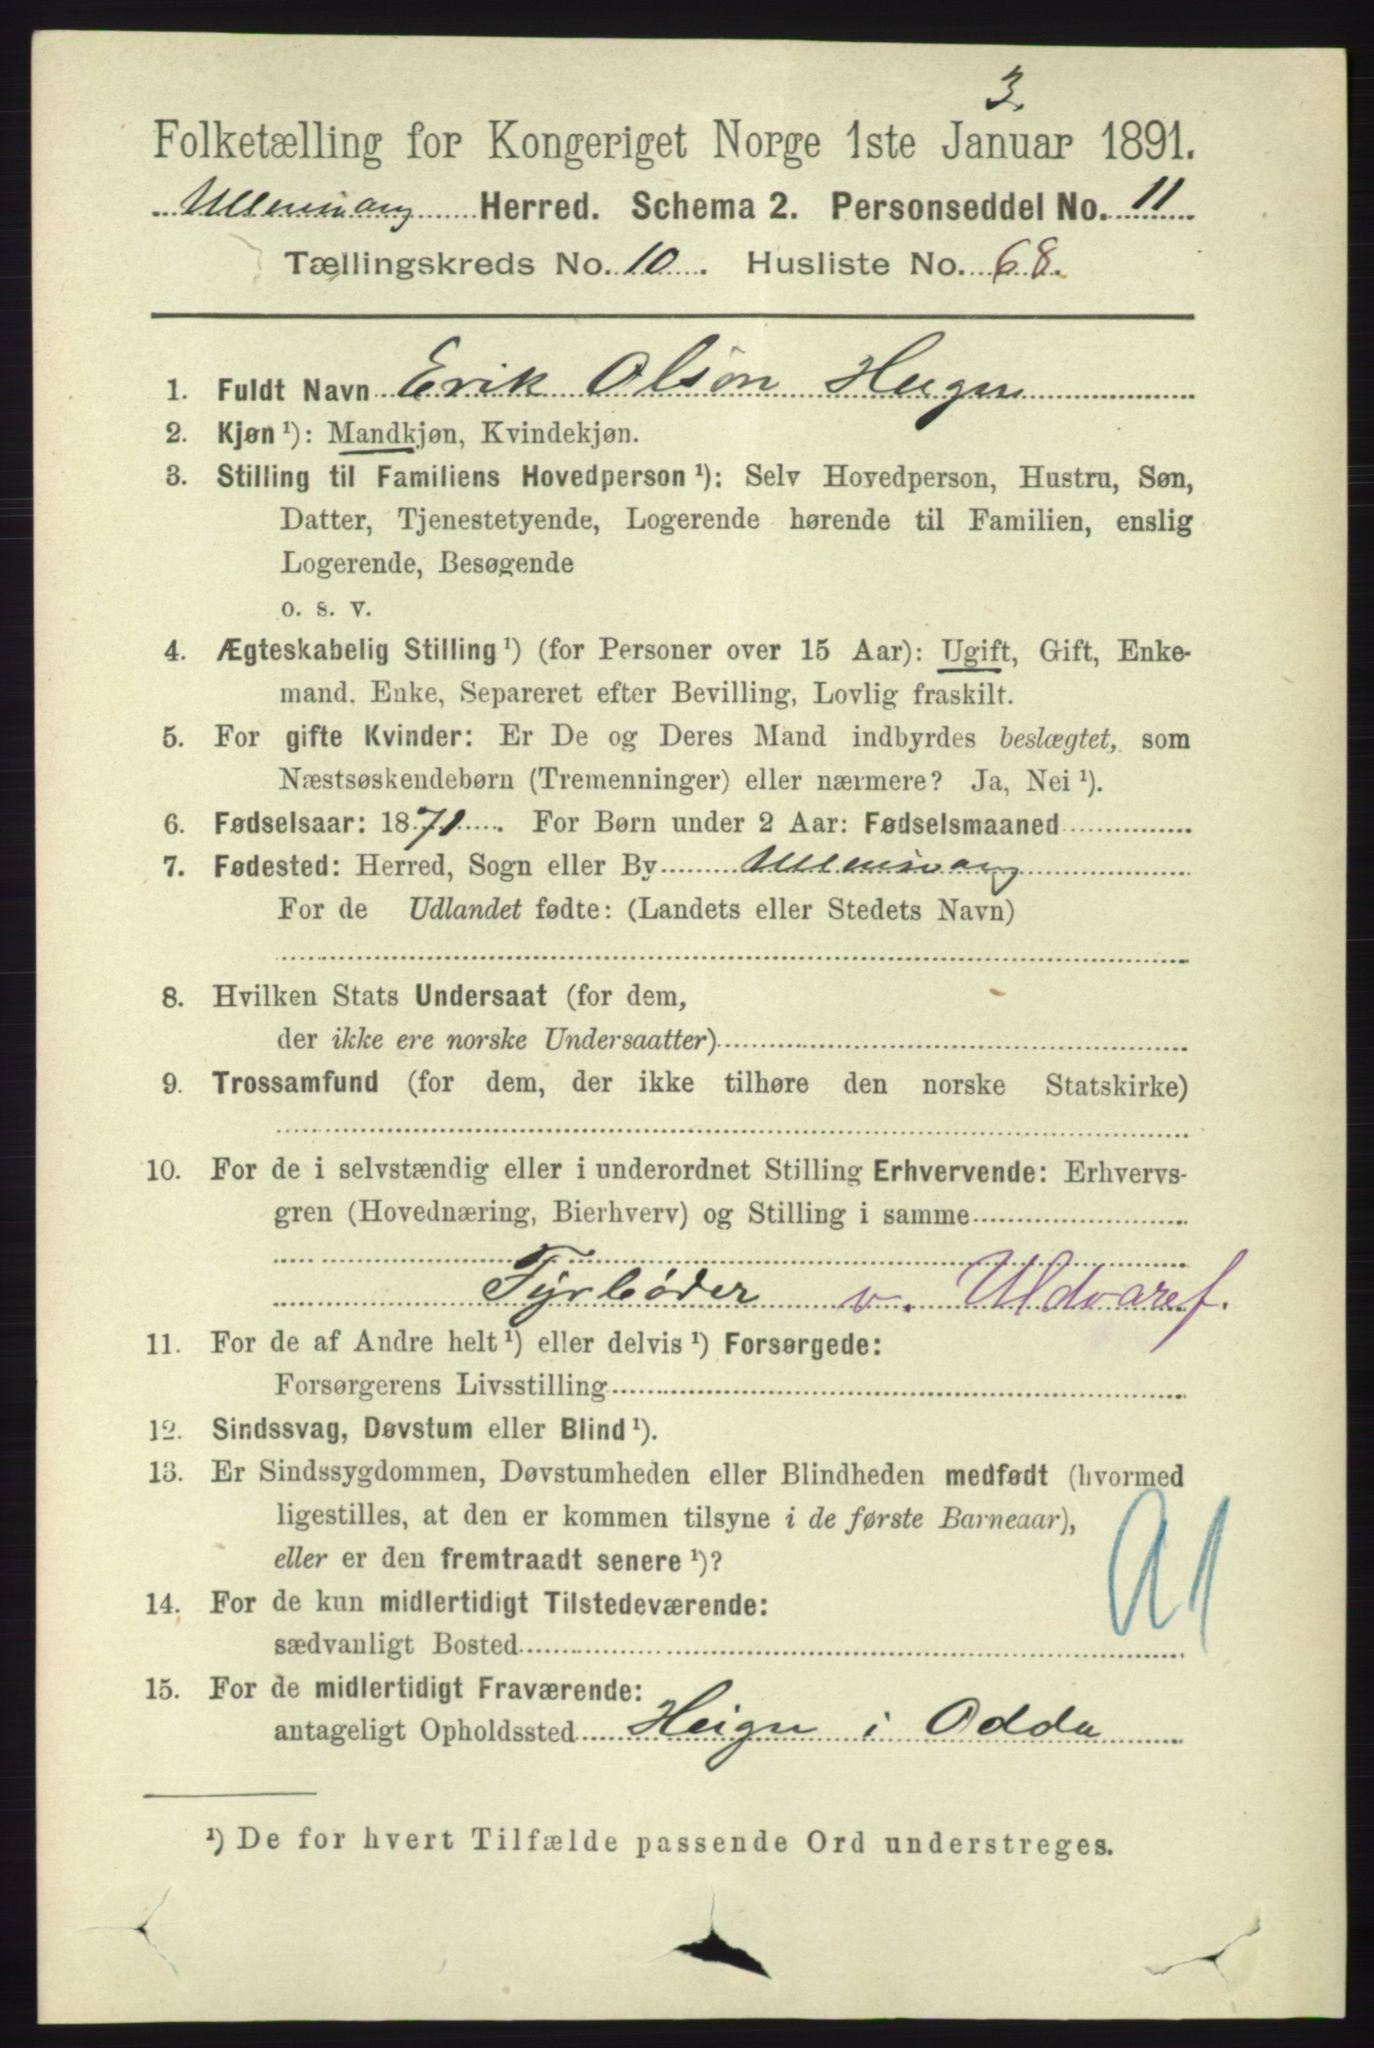 3.
Folketælling for Kongeriget Norge 1ste Januar 1891.
Ullensvang Herred. Schema 2. Personseddel No. 11
Tællingskreds No. 10. Husliste No. 68.
1. Fuldt Navn Erik Olson Heigen
2. Kjøn ¹): Mandkjøn, Kvindekjøn.
3. Stilling til Familiens Hovedperson ¹): Selv Hovedperson, Hustru, Søn,
Datter, Tjenestetyende, Logerende hørende til Familien, enslig
Logerende, Besøgende
o. s. v.
4. Ægteskabelig Stilling ¹) (for Personer over 15 Aar): Ugift, Gift, Enke-
mand, Enke, Separeret efter Bevilling, Lovlig fraskilt.
5. For gifte Kvinder: Er De og Deres Mand indbyrdes beslægtet, som
Næstsøskendebørn (Tremenninger) eller nærmere? Ja, Nei ¹).
6. Fødselsaar: 1871. For Børn under 2 Aar: Fødselsmaaned
7. Fødested: Herred, Sogn eller By Ullensvang
For de Udlandet fødte: (Landets eller Stedets Navn)
8. Hvilken Stats Undersaat (for dem,
der ikke ere norske Undersaatter)
9. Trossamfund (for dem, der ikke tilhøre den norske Statskirke)
10. For de i selvstændig eller i underordnet Stilling Erhvervende: Erhvervs-
gren (Hovednæring, Bierhverv) og Stilling i samme
Fyrbøder v. Uldvaref.
11. For de af Andre helt ¹) eller delvis ¹) Forsørgede:
Forsørgerens Livsstilling
12. Sindssvag, Døvstum eller Blind ¹).
13. Er Sindssygdommen, Døvstumheden eller Blindheden medfødt (hvormed
ligestilles, at den er kommen tilsyne i de første Barneaar),
eller er den fremtraadt senere ¹)?
14. For de kun midlertidigt Tilstedeværende:
sædvanligt Bosted
15. For de midlertidigt Fraværende:
antageligt Opholdssted Heigen i Odda
¹) De for hvert Tilfælde passende Ord understreges.